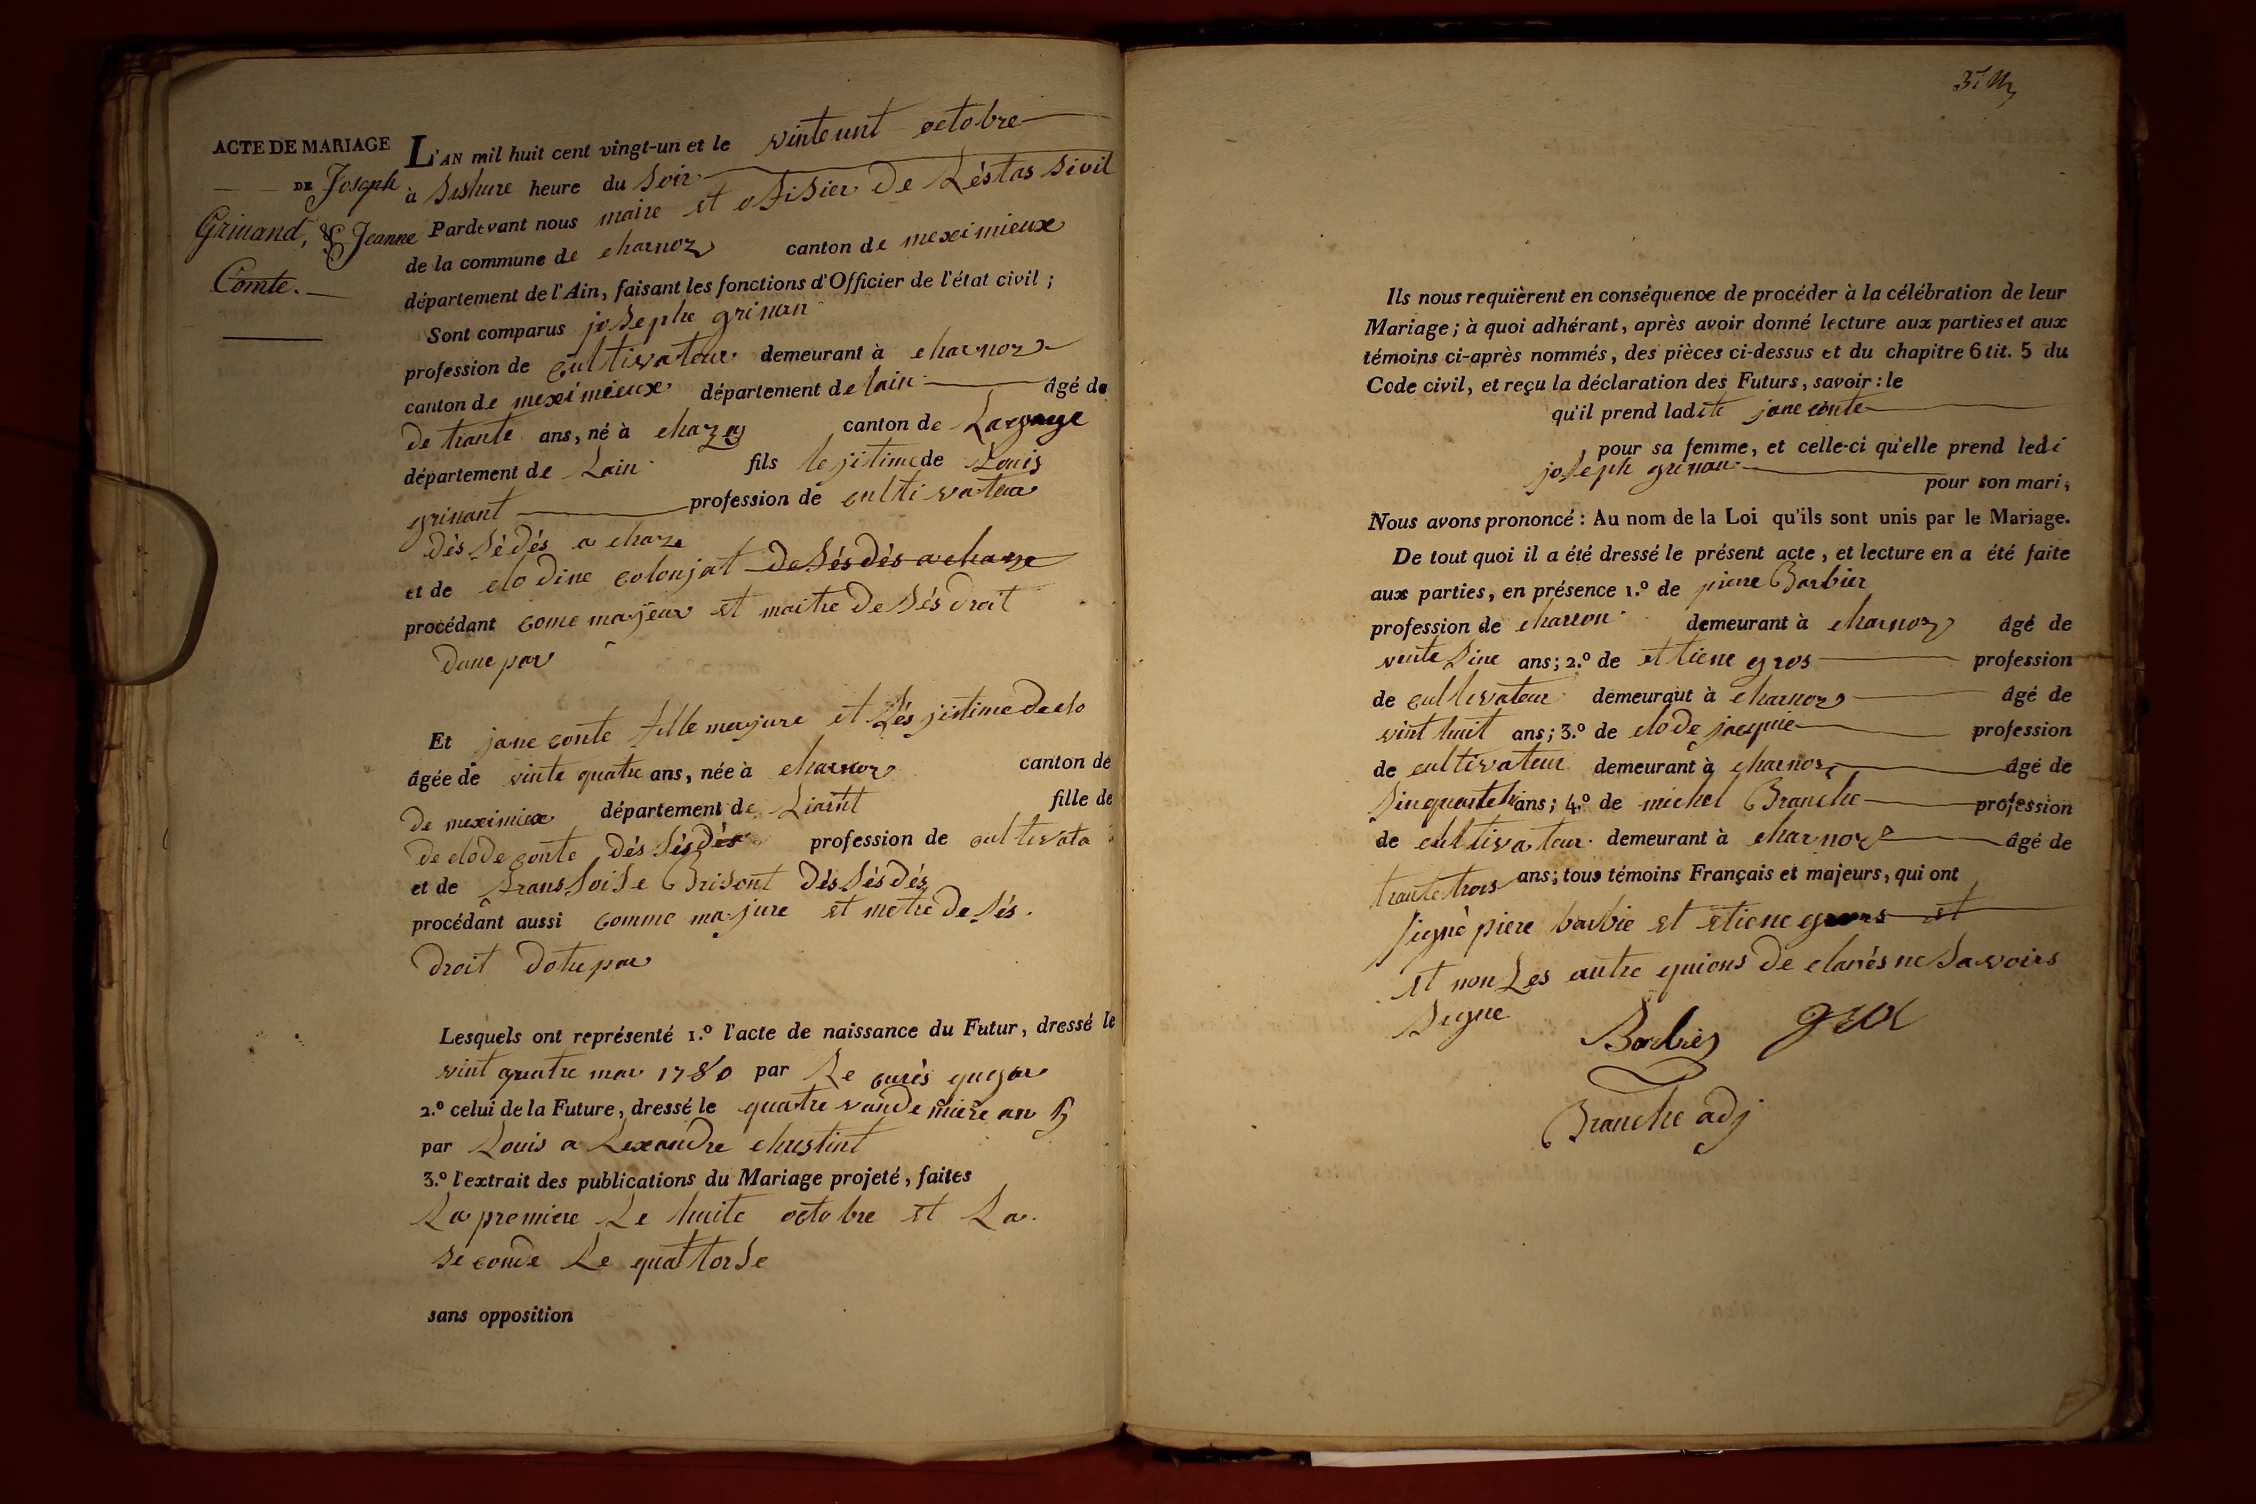 ACTE DE MARIAGE
DE Joseph
Grinand, & Jeanne
Comte.
L'AN mil huit cent vingt-un et le vinte unt octobre
à Sishure heure du Soir
Pardevant nous maire et ofisier De Léstas Sivil
de la commune de charnoz canton de meximieux
département de l'Ain, faisant les fonctions d'Officier de l'état civil ;
Sont comparus joSephe grinan
profession de cultivateur demeurant à charnoz
canton de meximieux département de lain âgé de
de trante ans, né à chazey canton de Lagnyue
département de Lain fils lejitime de Louis
grinant profession de cultivateur
désSédés a chaze
et de clodine colonjat deSésdés a chaze
procédant come majeur et maitre De Sés droit
dune par
Et jane conte fille majure et Lésjitime De clo
âgée de vinte quatre ans, née à charnoz canton de
De meximiex département de Liarnt fille de
De clode conte désSésdés profession de cultivata
et de franSoiSe Brisont désSésdés
procédant aussi comme majure et metre De Sés
droit dotre par
Lesquels ont représenté 1.º l'acte de naissance du Futur, dressé le
vint quatre mar 1780 par Le curés
2.º celui de la Future, dressé le quatre vandemiere an 5
par Louis a Lexandre chustint
3.º l'extrait des publications du Mariage projeté, faites
La premiere Le huite octobre et La
Seconde Le quattorSe
sans opposition
Ils nous requièrent en conséquence de procéder à la célébration de leur
Mariage ; à quoi adhérant, après avoir donné lecture aux parties et aux
témoins ci-après nommés, des pièces ci-dessus et du chapitre 6 tit. 5 du
Code civil, et reçu la déclaration des Futurs, savoir : le
qu'il prend ladite jane conte
, pour sa femme, et celle-ci qu'elle prend ledi
joseph grinan pour son mari,
Nous avons prononcé : Au nom de la Loi qu'ils sont unis par le Mariage.
De tout quoi il a été dressé le présent acte, et lecture en a été faite
aux parties, en présence 1.º de piere Barbier
profession de charon demeurant à charnoz âgé de
vente Sinc ans ; 2.º de ettiene gros profession
de cultivateur demeurant à charnoz âgé de
vint huit ans ; 3.º de clode jacquie profession
de cultivateur demeurant à charnoz âgé de
Sinquante ans ; 4.º de michel Branche profession
de cultivateur demeurant à charnoz âgé de
trante trois ans ; tous témoins Français et majeurs, qui ont
Signé piere barbie et etiene gros et
et non Les autre quions de clarés ne Savoirs
Signe
Barbier gros
Branche adj